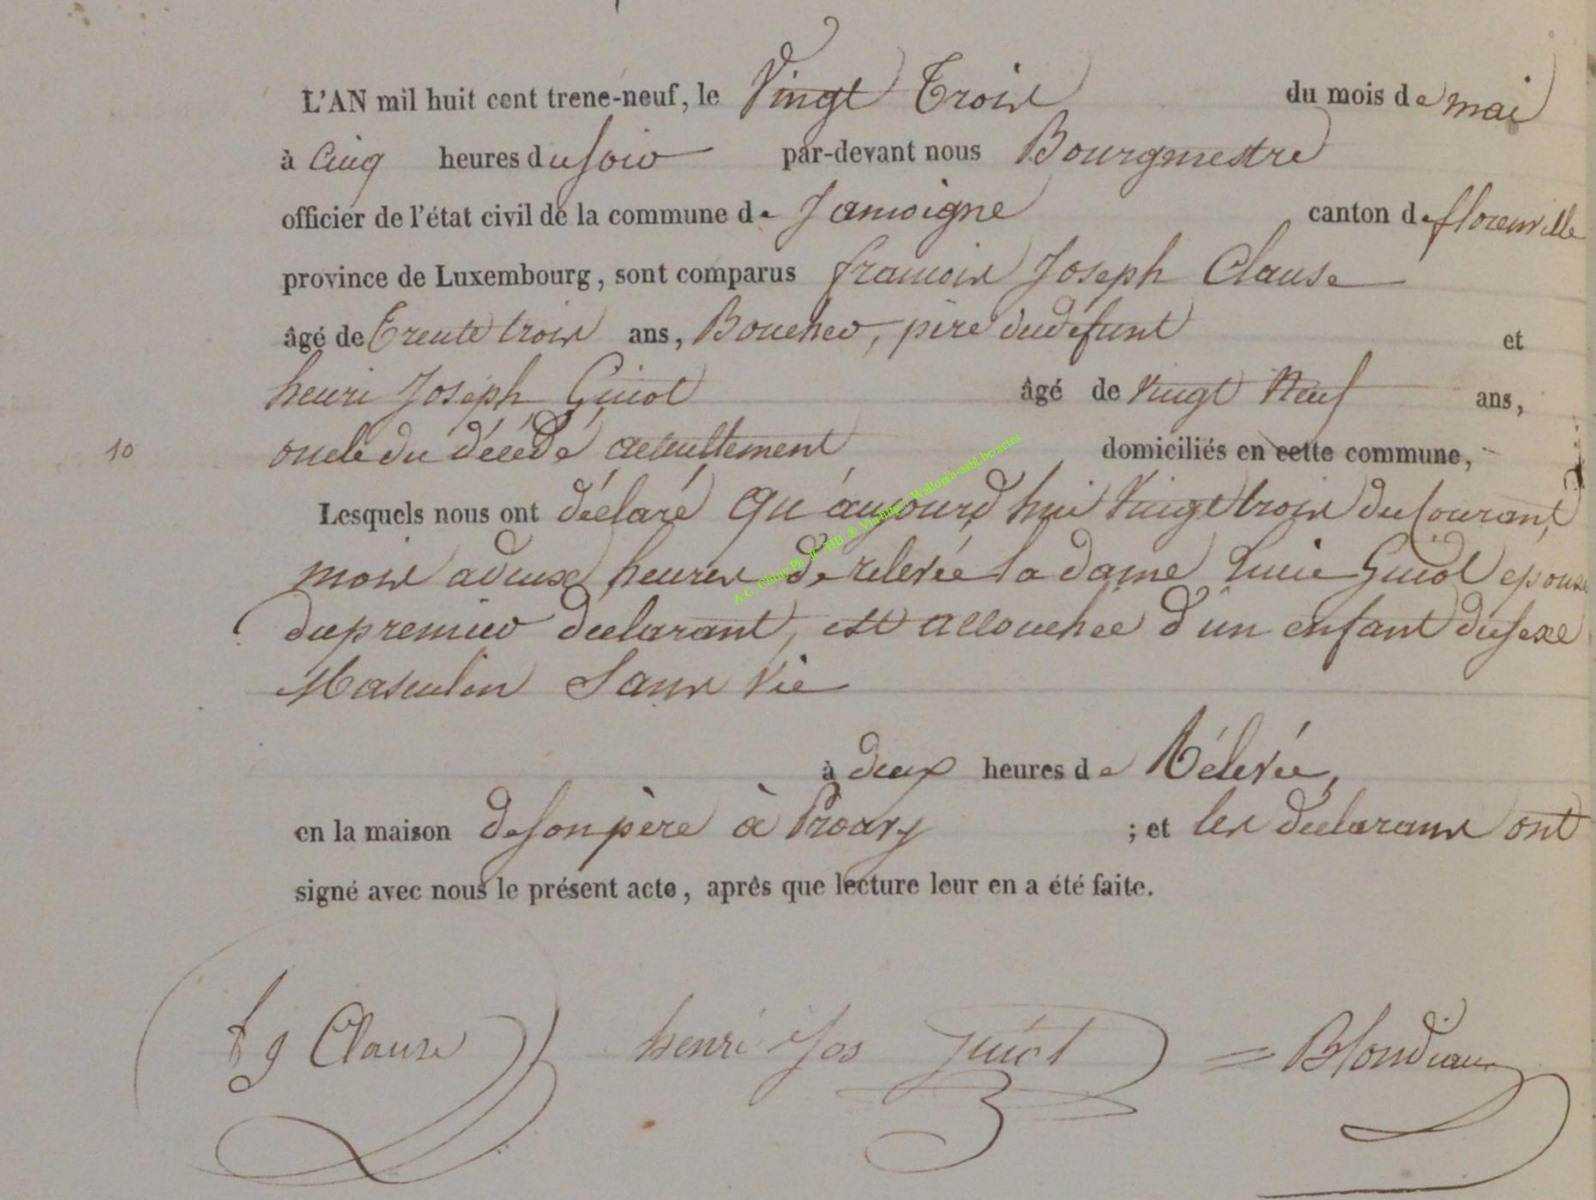 L'AN mil huit cent trene-neuf, le Vingt Trois du mois de mai
à Cinq heures du soir par-devant nous Bourgmestre
officier de l'état civil de la commune de Jamoigne canton de florenville
province de Luxembourg, sont comparus francois Joseph Clause
âgé de Trente trois ans, Boucher, père du défunt et
henri Joseph Guiot âgé de Vingt Neuf ans,
10 oncle du décédé domiciliés en cette commune,
Lesquels nous ont déclaré qu'aujourd'hui Vingt trois du Courant
mois a deux heures de relevée la dame Guiot epouse
du premier declarant, est accouchee d'un enfant du sexe
Masculin Sans Vie
à deux heures de Rélevée,
en la maison de son père à Prouvy ; et les declarans ont
signé avec nous le présent acte, après que lecture leur en a été faite.
f j Clause henri Jos Guiot Blondiau